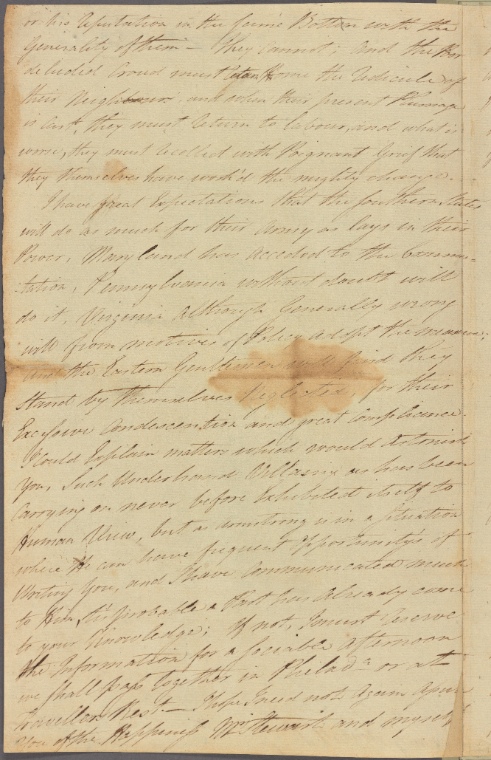 or his reputation in the same Bottom with the
Generality of them — they cannot; and the Poor
deluded Croud must return home the ridicule of
their Neighbours and when their present Plumage
is Cast, they must return to labour, and what is
worse, they must recollect with Poignant Grief that
they themselves have work'd the mighty change.
I have great Expectations that the Southern States
will do as much for their Army as lays in their
Power, Maryland has acceded to the Commu-
-tation, Pennsylvania without doubt will
do it, Virginia although Generally wrong
will from motives of Policy adopt the measure;
and the Eastern Gentlemen will find they
stand by themselves Neglected, for their
Excessive Condescention and great Complisance.
I Could Explain matters which would astonish
You, Such Underhand Villainy as has been
Carrying on never before Exhibited itself to
Human View, but as Armstrong is in a Situation
where He can have frequent Opportunitys of
Writing You, and I have Communicated much
to Him tis probable a Part has already come
to your Knowledge; If not, I must reserve
the Information for a sociable afternoon
we shall pass together in Philada or at
Hest — I hope I need not again
You of the Happiness Mrs Stewart and myself